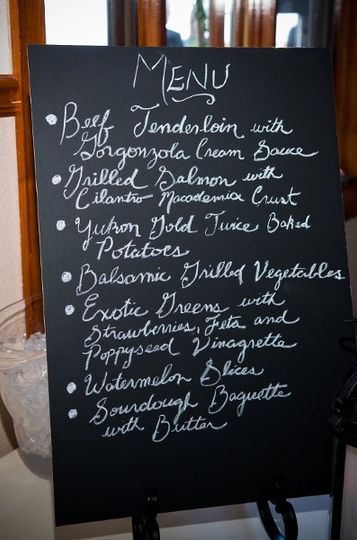 MENU
• Beef Tenderloin with
Gorgonzola Cream Sauce
• Grilled Salmon with
Cilantro Macademia Crust
• Yukon Gold Twice Baked
Potatoes
• Balsamic Grilled Vegetables
• Exotic Greens with
Strawberries, Feta and
Poppyseed Vinagretta
• Watermelon Slices
• Sourdough Baguette
with Butter